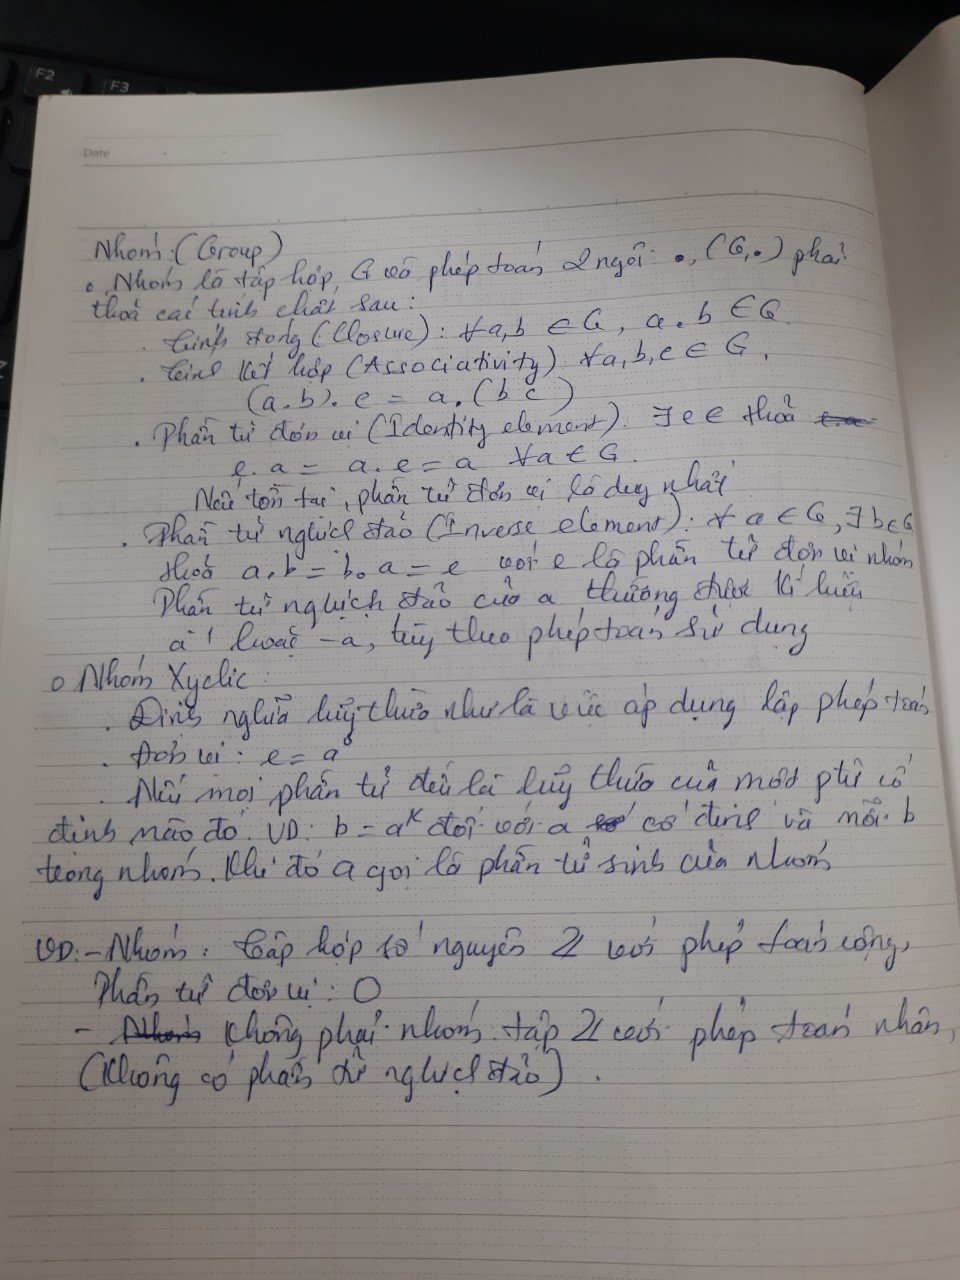 F2
F3
Date
Nhóm: (Group)
o Nhóm là tập hợp, G với phép toán 2 ngôi •, (G,•) phải
thoả các tính chất sau:
. Tính đóng (Closure): ∀a,b ∈ G, a.b ∈ G
. Tính kết hợp (Associativity) ∀a,b,c ∈ G,
(a.b).c = a.(b c)
. Phần tử đơn vị (Identity element). ∃e ∈ thoả
e.a = a.e = a ∀a ∈ G.
Nếu tồn tại, phần tử đơn vị là duy nhất
. Phần tử nghịch đảo (Inverse element): ∀ a ∈ G, ∃b∈G
thoả a.b = b.a = e với e là phần tử đơn vị nhóm
Phần tử nghịch đảo của a thường được kí hiệu
a⁻¹ hoặc -a, tùy theo phép toán sử dụng
o Nhóm Xyclic:
. Định nghĩa luỹ thừa như là việc áp dụng lặp phép toán
. Đơn vị: e = a⁰
. Nếu mọi phần tử đều là luỹ thừa của một ptử cố
định nào đó. VD: b = aᵏ đối với a cố định và mỗi b
trong nhóm. Khi đó a gọi là phần tử sinh của nhóm
VD: - Nhóm: Tập hợp số nguyên ℤ với phép toán cộng,
Phần tử đơn vị: 0
- Không phải nhóm: tập ℤ với phép toán nhân,
(Không có phần tử nghịch đảo).